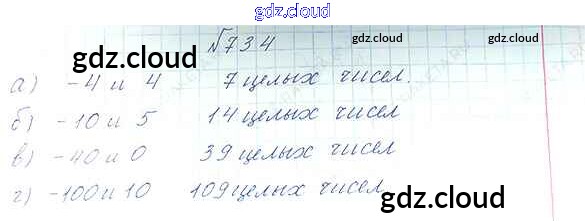 gdz.cloud
№734
gdz.cloud
gdz.cloud
а) -4 и 4 7 целых чисел.
б) -10 и 5 14 целых чисел
gdz.cloud
в) -40 и 0 39 целых чисел
г) -100 и 10 109 целых чисел
gdz.cloud